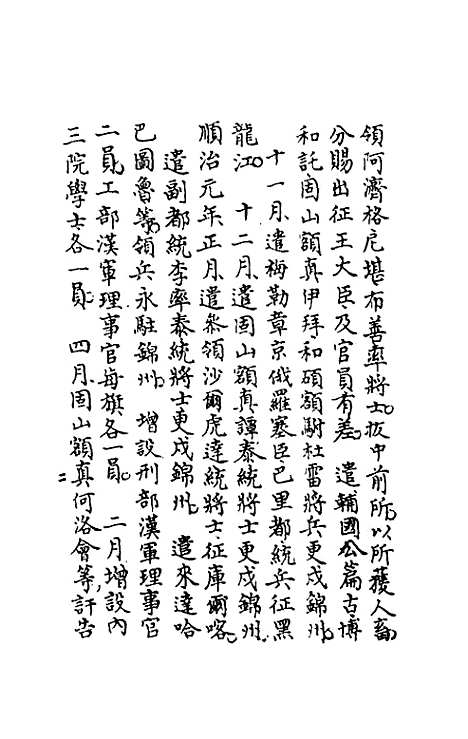 領阿濟格尼堪布善率將士。拔中前所。以所獲人畜。
分賜出征王大臣及官員有差。 遣輔國公篇古博
和託固山額真伊拜和碩額駙杜雷將兵更戍錦州。
十一月。遣梅勒章京俄羅塞臣巴里都統兵征黑
龍江。 十二月。遣固山額真譚泰統將士更戍錦州。
順治元年正月。遣叅領沙爾虎達統將士征庫爾喀。
遣副都統李率泰統將士更戍錦州。 遣來達哈
巴圖魯等。領兵永駐錦州。 增設刑部漢軍理事官
二員。工部漢軍理事官每旗各一員。 二月。增設內
三院學士各一員。 四月。固山額真何洛會等訐告